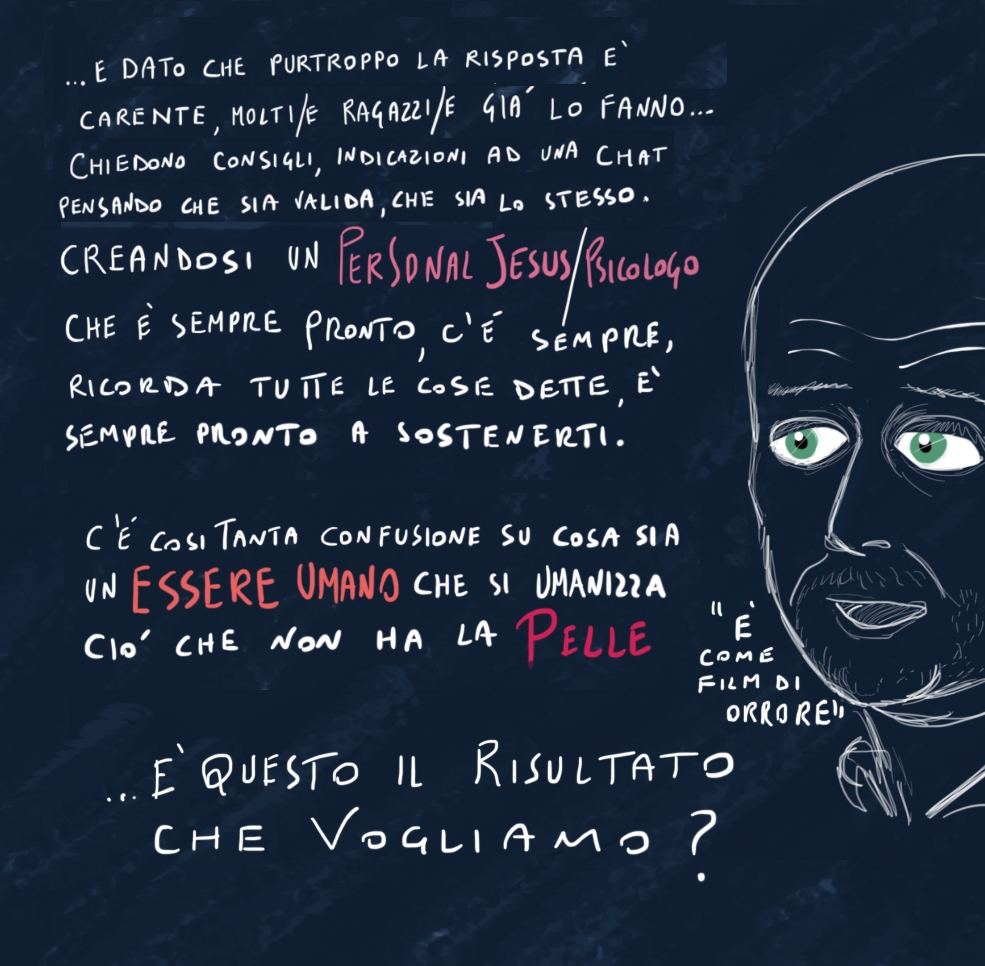 ...E DATO CHE PURTROPPO LA RISPOSTA E'
CARENTE, MOLTI/E RAGAZZI/E GIA' LO FANNO...
CHIEDONO CONSIGLI, INDICAZIONI AD UNA CHAT
PENSANDO CHE SIA VALIDA, CHE SIA LO STESSO.
CREANDOSI UN PERSONAL JESUS/PSICOLOGO
CHE È SEMPRE PRONTO, C'É SEMPRE,
RICORDA TUTTE LE COSE DETTE, E'
SEMPRE PRONTO A SOSTENERTI.
C'É COSI TANTA CONFUSIONE SU COSA SIA
UN ESSERE UMANO CHE SI UMANIZZA
CIO' CHE NON HA LA PELLE
"È
COME
FILM DI
ORRORE"
...E' QUESTO IL RISULTATO
CHE VOGLIAMO?